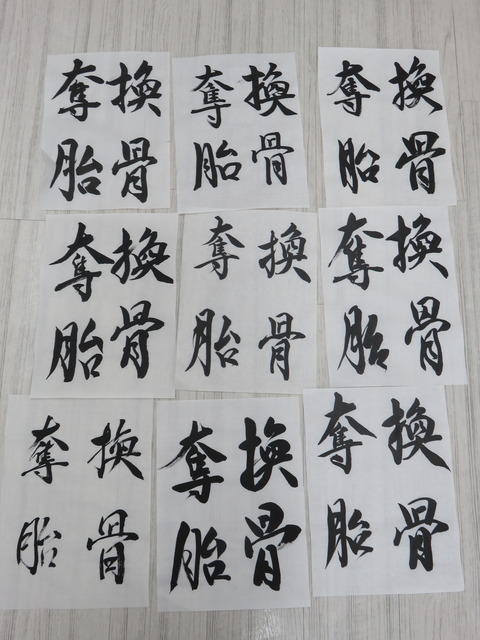 換骨
奪胎
換骨
奪胎
換骨
奪胎
換骨
奪胎
換骨
奪胎
換骨
奪胎
換骨
奪胎
換骨
奪胎
換骨
奪胎